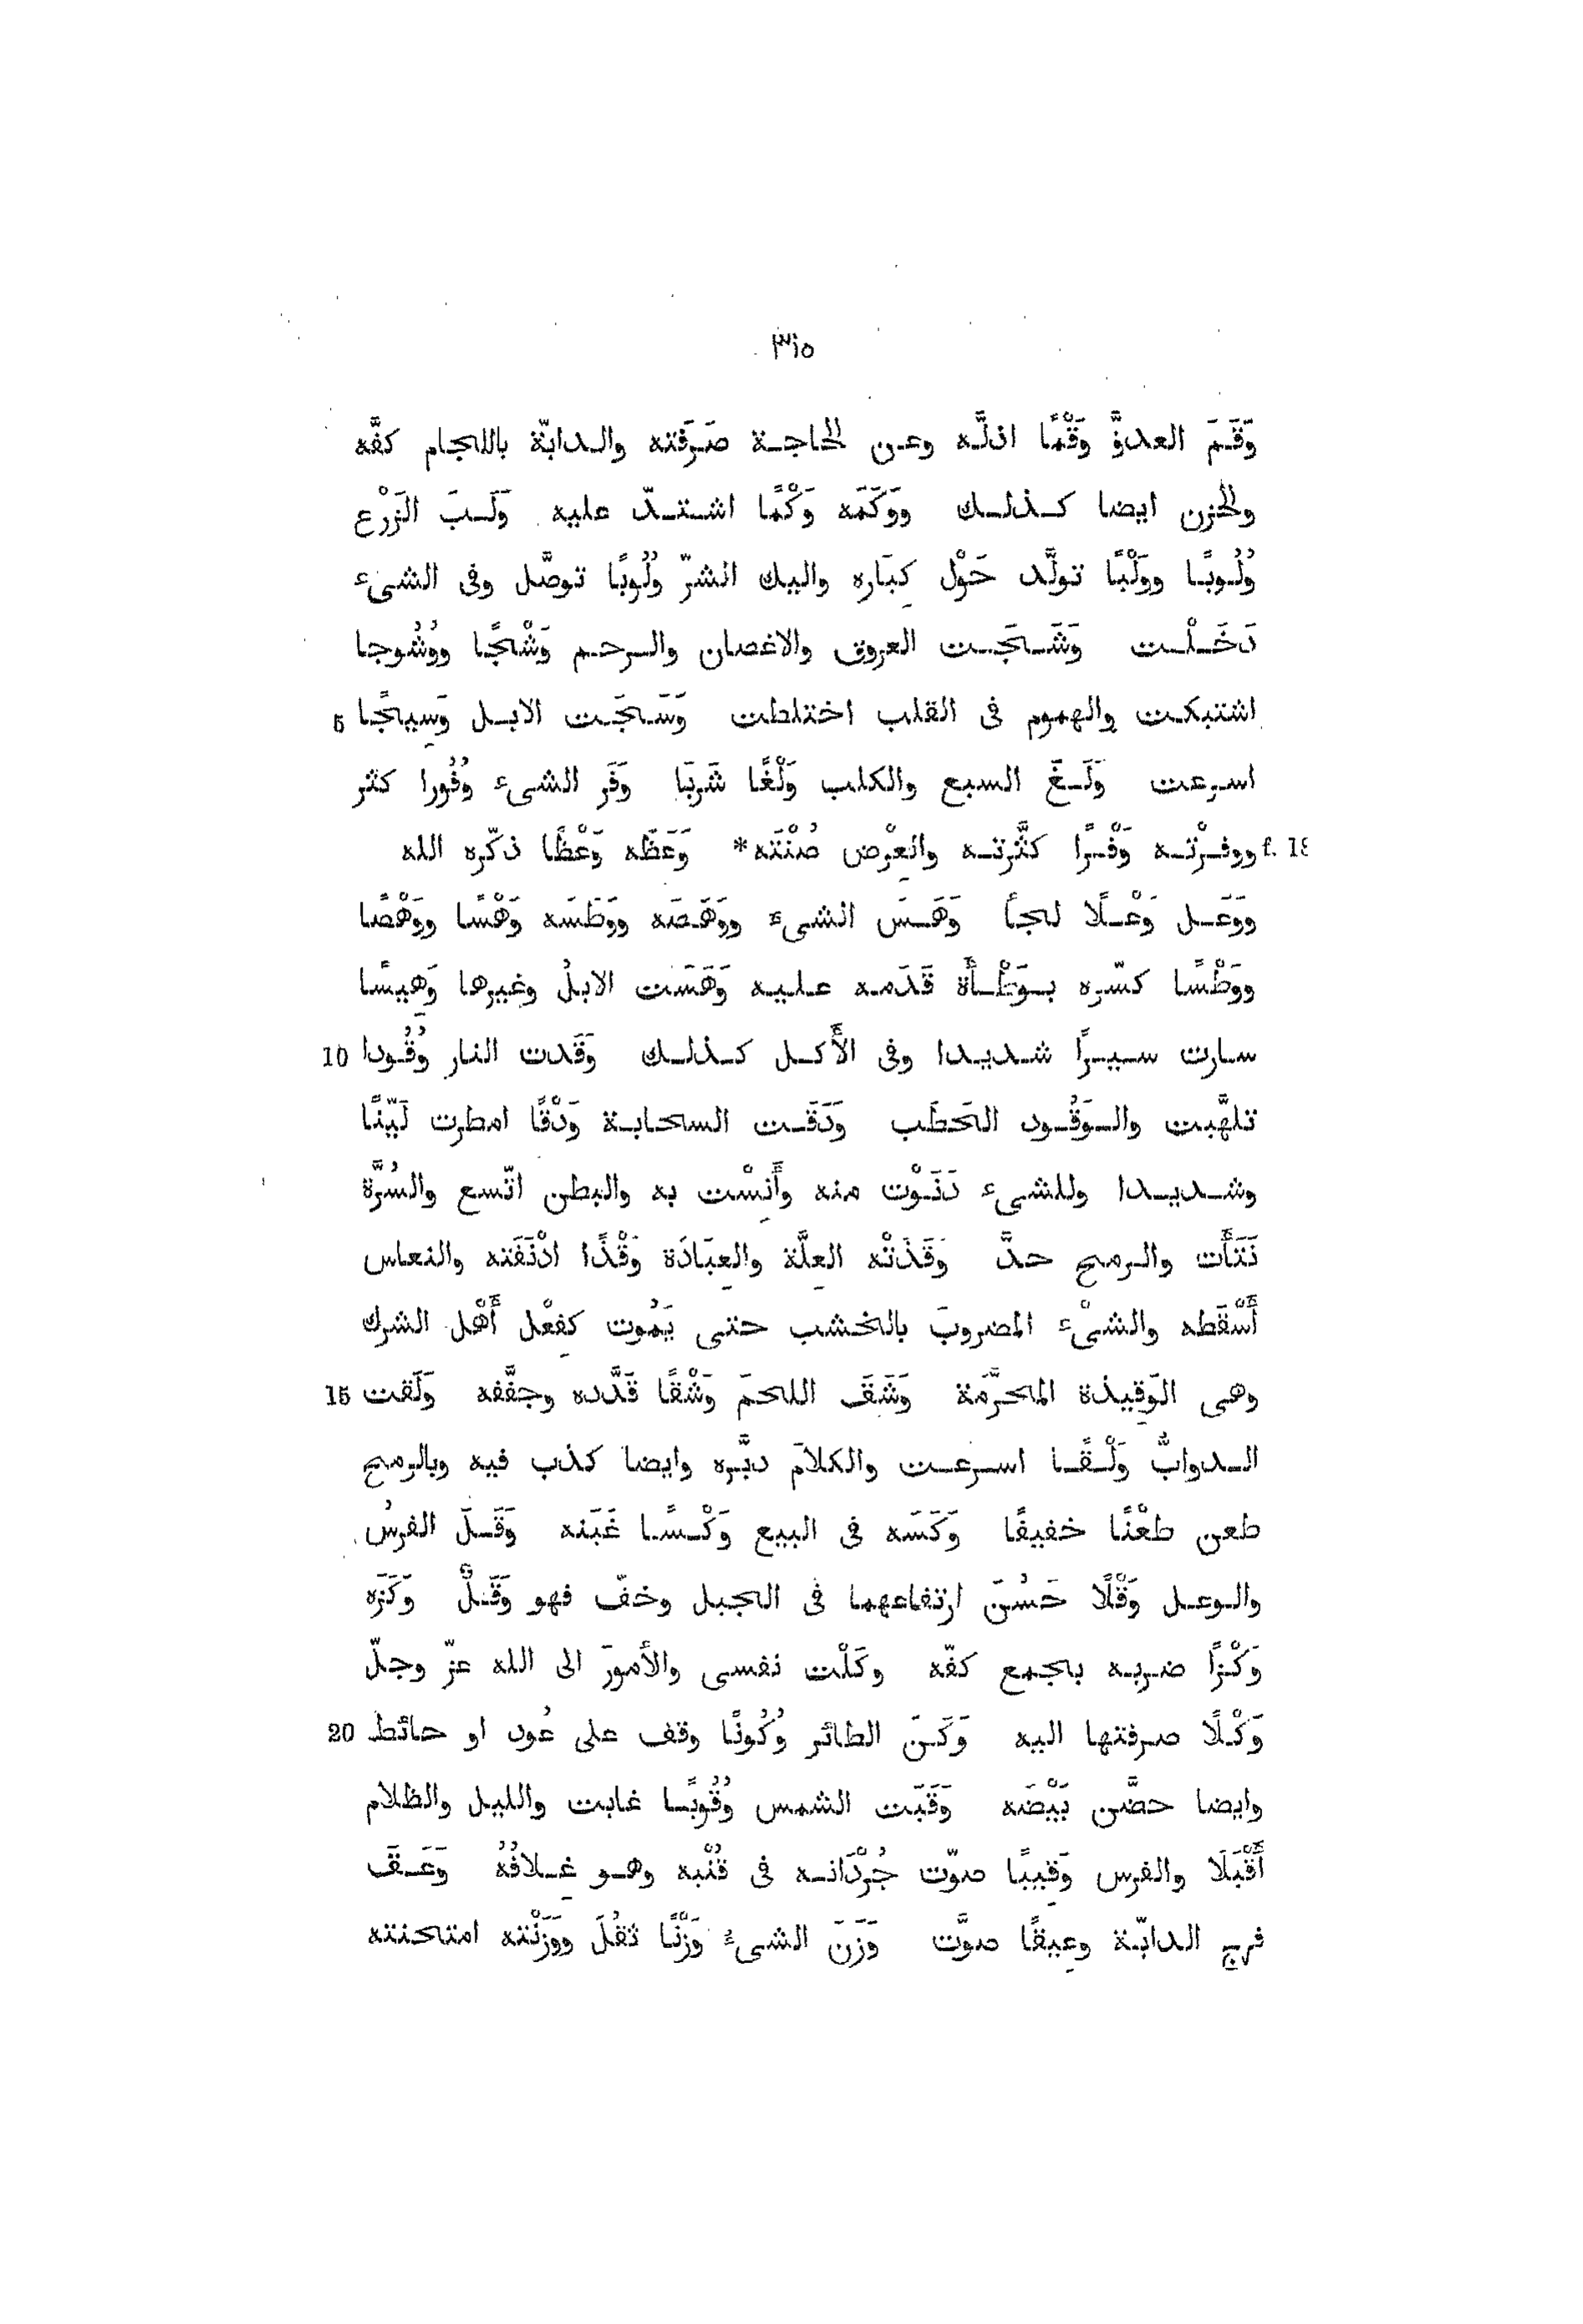 ٣١٥
وَقَمَ العدوَّ وَقْمًا اذلَّه وعن الحاجة صَرَفته والدابّة باللجام كفَّه
والحزن ايضا كذلك ووَكَمَه وَكْمًا اشتدّ عليه وَلَبَ الزَرْع
وُلُوبًا ووَلْبًا تولَّد حَوْل كِبَاره واليك الشرّ وُلُوبًا توصَّل وفى الشىء
دَخَلْت وَشَجَت العروق والاغصان والرحم وَشْجًا ووُشُوجا
اشتبكت والهموم فى القلب اختلطت وَسَجَت الابل وَسِيجًا 5
اسرعت وَلَغَ السبع والكلب وَلْغًا شَرِبَا وَفَر الشىء وُفُورا كثر
f. 18 ووفرْته وَفْرًا كثَّرته والعِرْض صُنْتَه* وَعَظَه وَعْظًا ذكّره الله
ووَعَل وَعْلًا لجأ وَهَسَ الشىءَ ووَهَصَه ووَطَسَه وَهْسًا ووَهْصًا
ووَطْسًا كسّره بوَطْأَة قَدَمه عليه وَهَسَت الابلُ وغيرها وَهِيسًا
سارت سيرًا شديدا وفى الأَكل كذلك وَقَدت النار وُقُودا 10
تلهَّبت والوَقُود الحَطَب وَدَقَت السحابة وَدْقًا امطرت لَيّنًا
وشديدا وللشىء دَنَوْت منه وأَنِسْت به والبطن اتّسع والسُرَّة
نَتَأَت والرمح حدَّ وَقَذَتْه العلَّة والعِبَادَة وَقْذًا ادْنَفَته والنعاس
أَسْقَطه والشىْء المضروبَ بالخشب حتى يَمُوت كفِعْل أَهْل الشرك
وهى الوَقِيذة المحَرَّمَة وَشَقَ اللحمَ وَشْقًا قَدَّده وجفَّفه وَلَقت 15
الدوابُّ وَلْقًا اسرعت والكلامَ دبَّره وايضا كذب فيه وبالرمح
طعن طعْنًا خفيفًا وَكَسَه فى البيع وَكْسًا غَبَنه وَقَلَ الفرسُ
والوعل وَقْلًا حَسُنَ ارتفاعهما فى الجبل وخفّ فهو وَقَلٌ وَكَزَه
وَكْزًا ضربه بجمع كفّه وكَلْت نفسى والأمورَ الى الله عزّ وجلّ
وَكْلًا صرفتها اليه وَكَنَ الطائر وُكُونًا وقف على عُود او حائط 20
وايضا حضَّن بَيْضَه وَقَبَت الشمس وُقُوبًا غابت والليل والظلام
أَقْبَلَا والفرس وَقِيبًا صوّت جُرْدَانه فى قُنْبه وهو غِلافُهُ وَعَقَ
فرج الدابّة وعِيقًا صوَّت وَزَنَ الشىءُ وَزْنًا ثقُلَ ووَزَنْته امتحنته